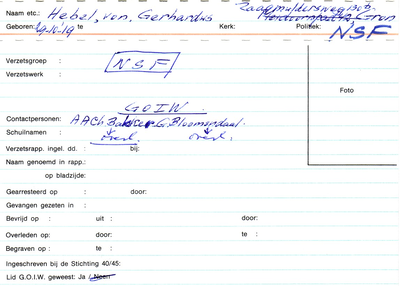 Naam etc.: Hebel, von, Gerhardus Zaagmuldersweg 309
Geboren: 29-10-19 te Kerk: Politiek: Gron
NSF
Verzetsgroep : NSF
Verzetswerk :
Foto
GOIW
Contactpersonen: AACh Bakker G. Bloemendaal.
Schuilnamen : overl. overl.
Verzetsrapp. ingel. dd. : bij:
Naam genoemd in rapp.:
op bladzijde:
Gearresteerd op : door:
Gevangen gezeten in :
Bevrijd op : uit : door:
Overleden op: door: te :
Begraven op : te :
Ingeschreven bij de Stichting 40/45:
Lid G.O.I.W. geweest: Ja / Neen